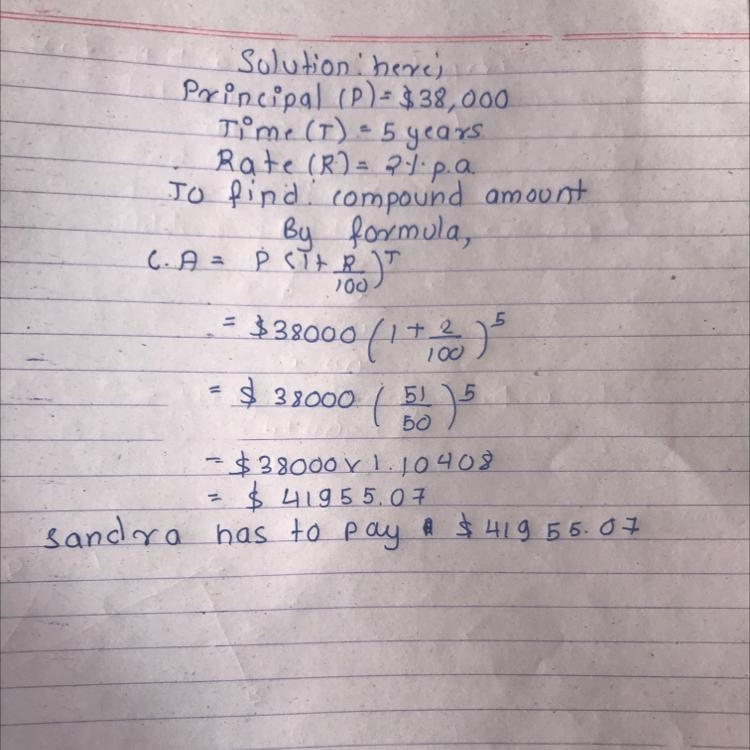 Solution: here;
Principal (P) = $38,000
Time (T) = 5 years
Rate (R) = 2% p.a.
To find: compound amount
By formula,
C.A = P (1 + R/100)^T
= $38000 (1 + 2/100)^5
= $ 38000 (51/50)^5
= $38000 x 1.10408
= $ 41955.07
Sandra has to pay $ 41955.07